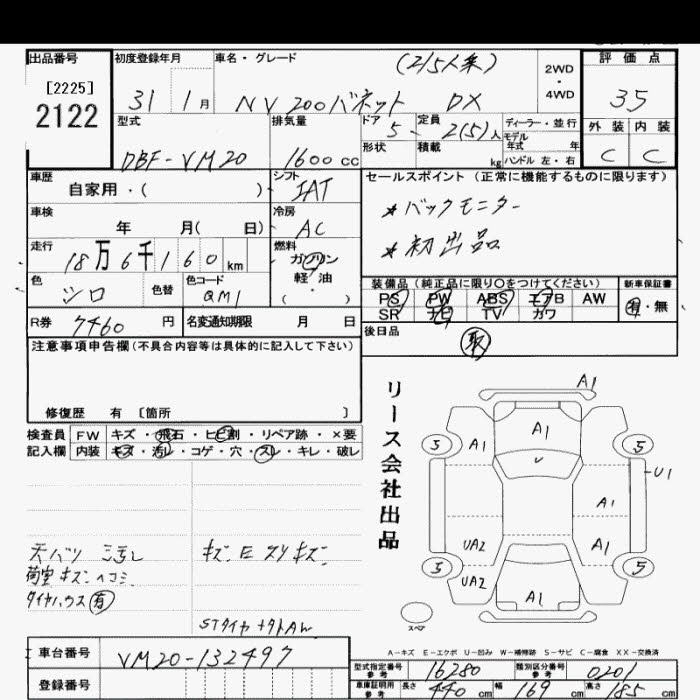 出品番号 初度登録年月 車名・グレード (2/5人乗) 2WD・4WD 評価点
[2225]
2122
31年 1月 NV200バネット DX 35
型式 排気量 ドア 5 定員 2(5)人 ディーラー・並行 外装 内装
モデル年式 年
DBF-VM20 1600cc 形状 積載 kg ハンドル 左・右 C C
車歴 シフト セールスポイント (正常に機能するものに限ります)
自家用・( ) IAT
*バックモニター
車検 冷房
年 月( 日) AC
*初出品
走行 燃料
18万6千160km ガソリン
軽・油
( ・ )
色 シロ 色替 色コード QM1
装備品 (純正品に限り○をつけてください) 新車保証書
PS PW ABS エアB AW 有・無
SR ナビ TV カワ
R券 7460円 名変通知期限 月 日
後日品 取
注意事項申告欄(不具合内容等は具体的に記入して下さい)
修復歴 有 〔箇所 〕
検査員 FW キズ・飛石・ヒビ割・リペア跡・×要
記入欄 内装 キズ・汚レ・コゲ・穴・スレ・キレ・破レ
リース会社出品
A1
A1
A1
5
5
U
U1
A1
UA2
A1
5
5
UA2
A1
スペア
荷室キズヘコミ
タイヤハウス有
A-キズ E-エクボ U-凹み W-補修跡 S-サビ C-腐食 XX-交換済
車台番号 VM20-132497
登録番号
型式指定番号 参考 16280 類別区分番号 参考 0201
車庫証明用 参考 長さ 440cm 幅 169cm 高さ 185cm